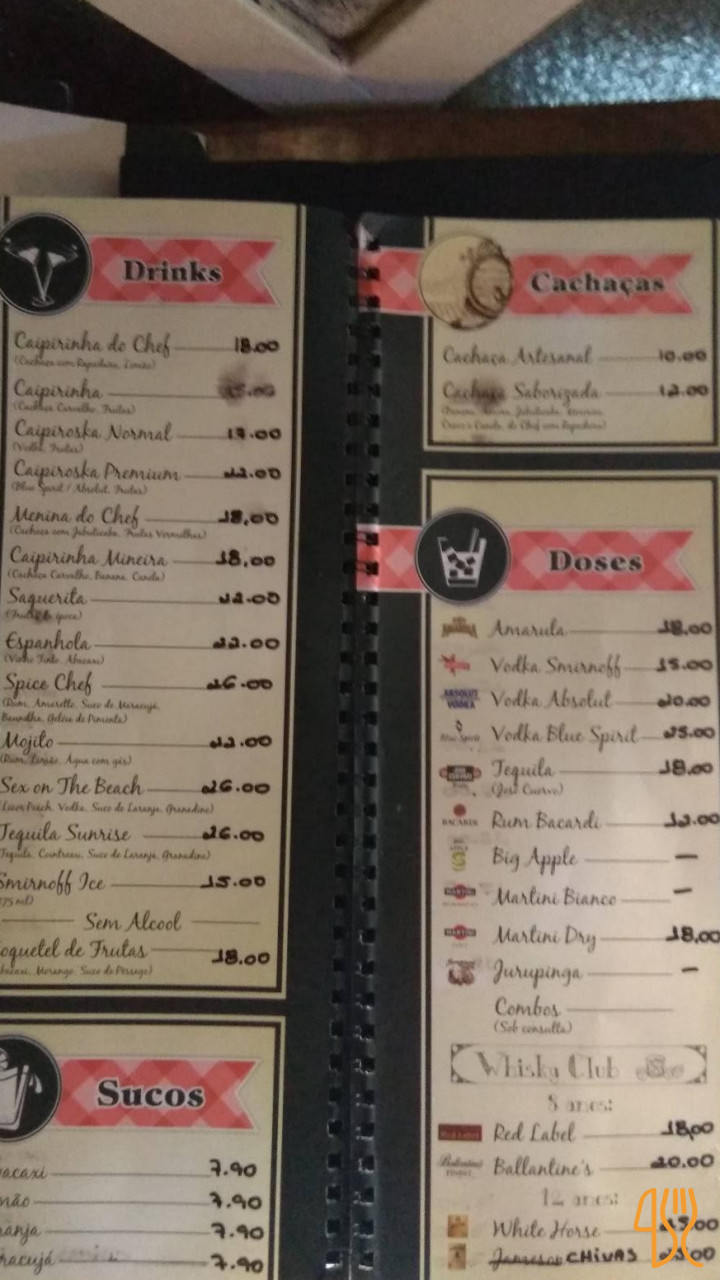 Drinks
Caipirinha do Chef 18.00
(Cachaça com Rapadura, Limão)
Caipirinha
(Cachaça Carvalho, Frutas)
Caipiroska Normal 17.00
(Vodka, Frutas)
Caipiroska Premium 22.00
(Blue Spirit / Absolut, Frutas)
Menina do Chef 18,00
(Cachaça com Jabuticaba, Frutas Vermelhas)
Caipirinha Mineira 18,00
(Cachaça Carvalho, Banana, Canela)
Saquerita 22.00
Espanhola 22.00
(Vinho Tinto, Abacaxi)
Spice Chef 26.00
(Rum, Amaretto, Suco de Maracujá,
Baunilha, Geléia de Pimenta)
Mojito 22.00
(Rum, Limão, Água com gás)
Sex on The Beach 26.00
Licor Peach, Vodka, Suco de Laranja, Granadine)
Tequila Sunrise 26.00
Tequila, Cointreau, Suco de Laranja, Granadine)
Smirnoff Ice 15.00
275 ml)
Sem Alcool
oquetel de Frutas 18.00
bacaxi, Morango, Suco de Pêssego)
Sucos
bacaxi 7.90
mão 7.90
ranja 7.90
racujá 7.90
Cachaças
Cachaça Artesanal 10.00
Cachaça Saborizada 12.00
Doses
Amarula 18,00
Vodka Smirnoff 15.00
ABSOLUT VODKA Vodka Absolut 20.00
Blue Spirit Vodka Blue Spirit 25.00
Tequila 18.00
(José Cuervo)
BACARDI Rum Bacardi 12.00
Big Apple —
MARTINI Martini Bianco —
MARTINI Martini Dry 18,00
Jurupinga —
Combos
(Sob consulta)
Whisky Club
8 anos:
Red Label Red Label 18,00
Ballantine's Ballantine's 20.00
12 anos:
White Horse
Jameson CHIVAS